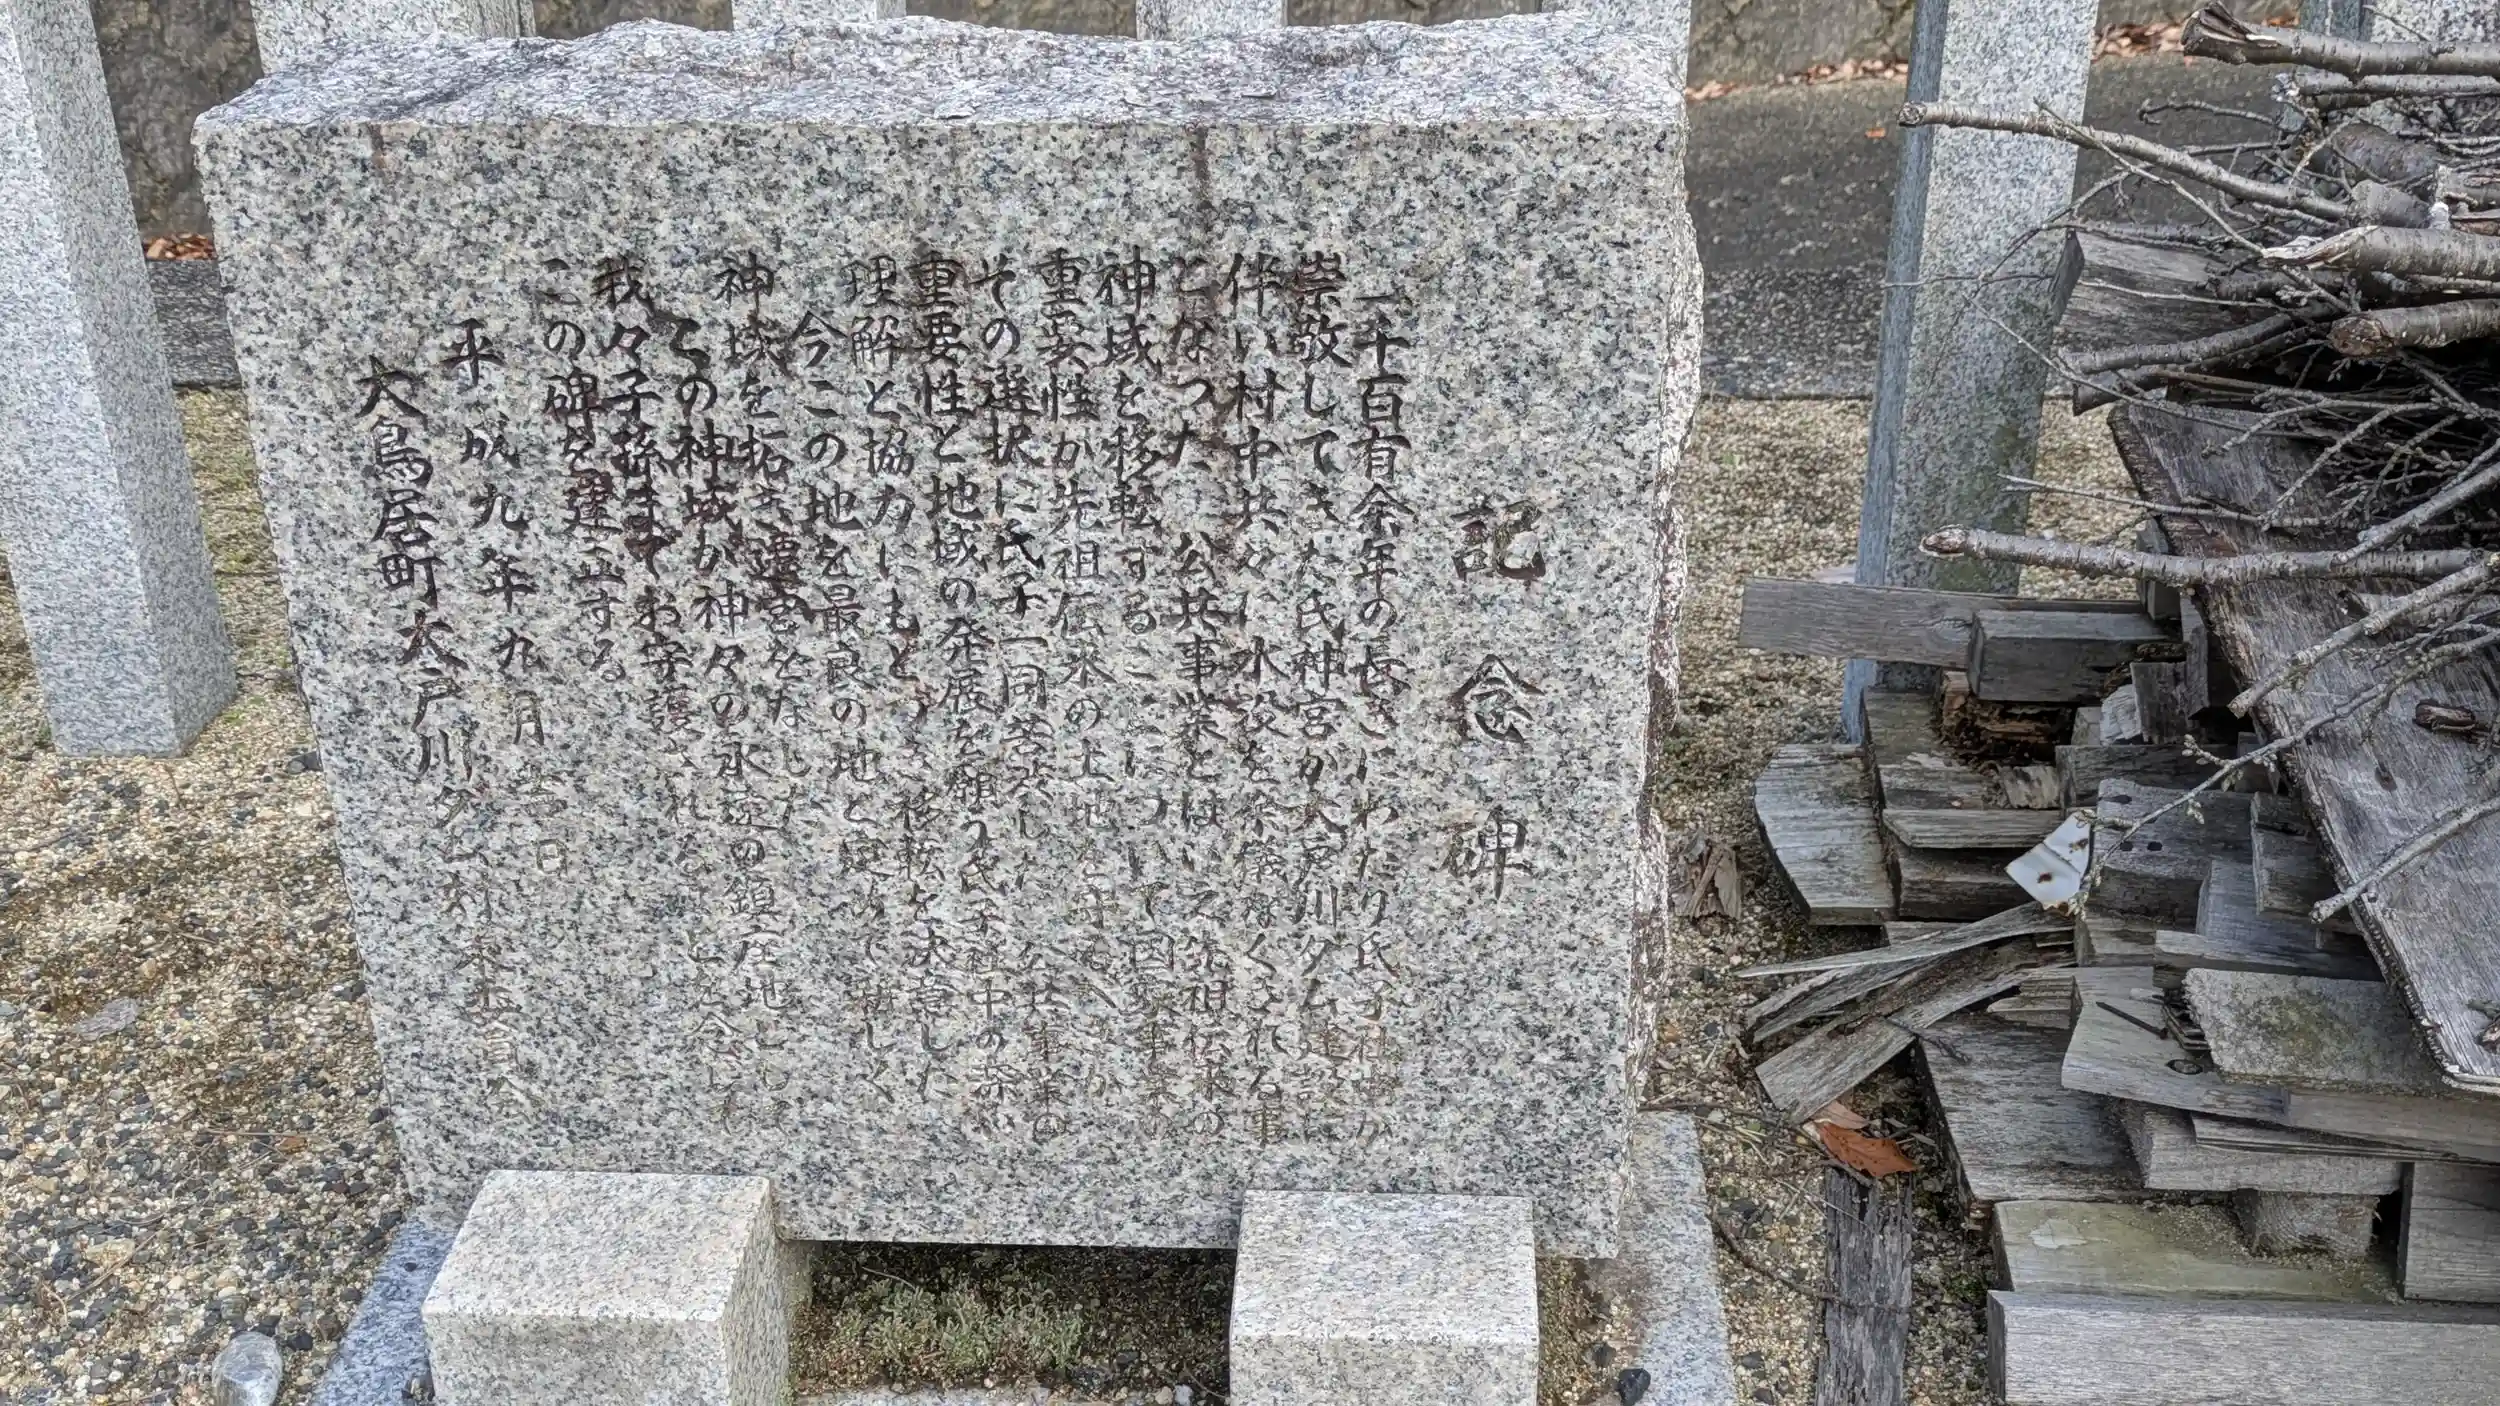 記念碑
一千百有余年の長きにわたり氏子社中が
崇敬してきた氏神宮が大戸川ダム建設に
伴い村中共々に水没を余儀なくされる事
となった 公共事業とはいえ先祖伝来の
神域を移転することについて国家事業の
重要性か先祖伝来の土地を守るべきか
その選択に氏子一同苦渋した 公共事業の
重要性と地域の発展を願う氏子社中の深い
理解と協力にもとづき移転を決意した
今この地を最良の地と定めて新しく
神域を拓き遷宮をなした
この神域が神々の永遠の鎮座地として
我々子孫までお守護されることを念じ
この碑を建立する
平成九年九月 日
大鳥居町大戸川ダム対策委員会